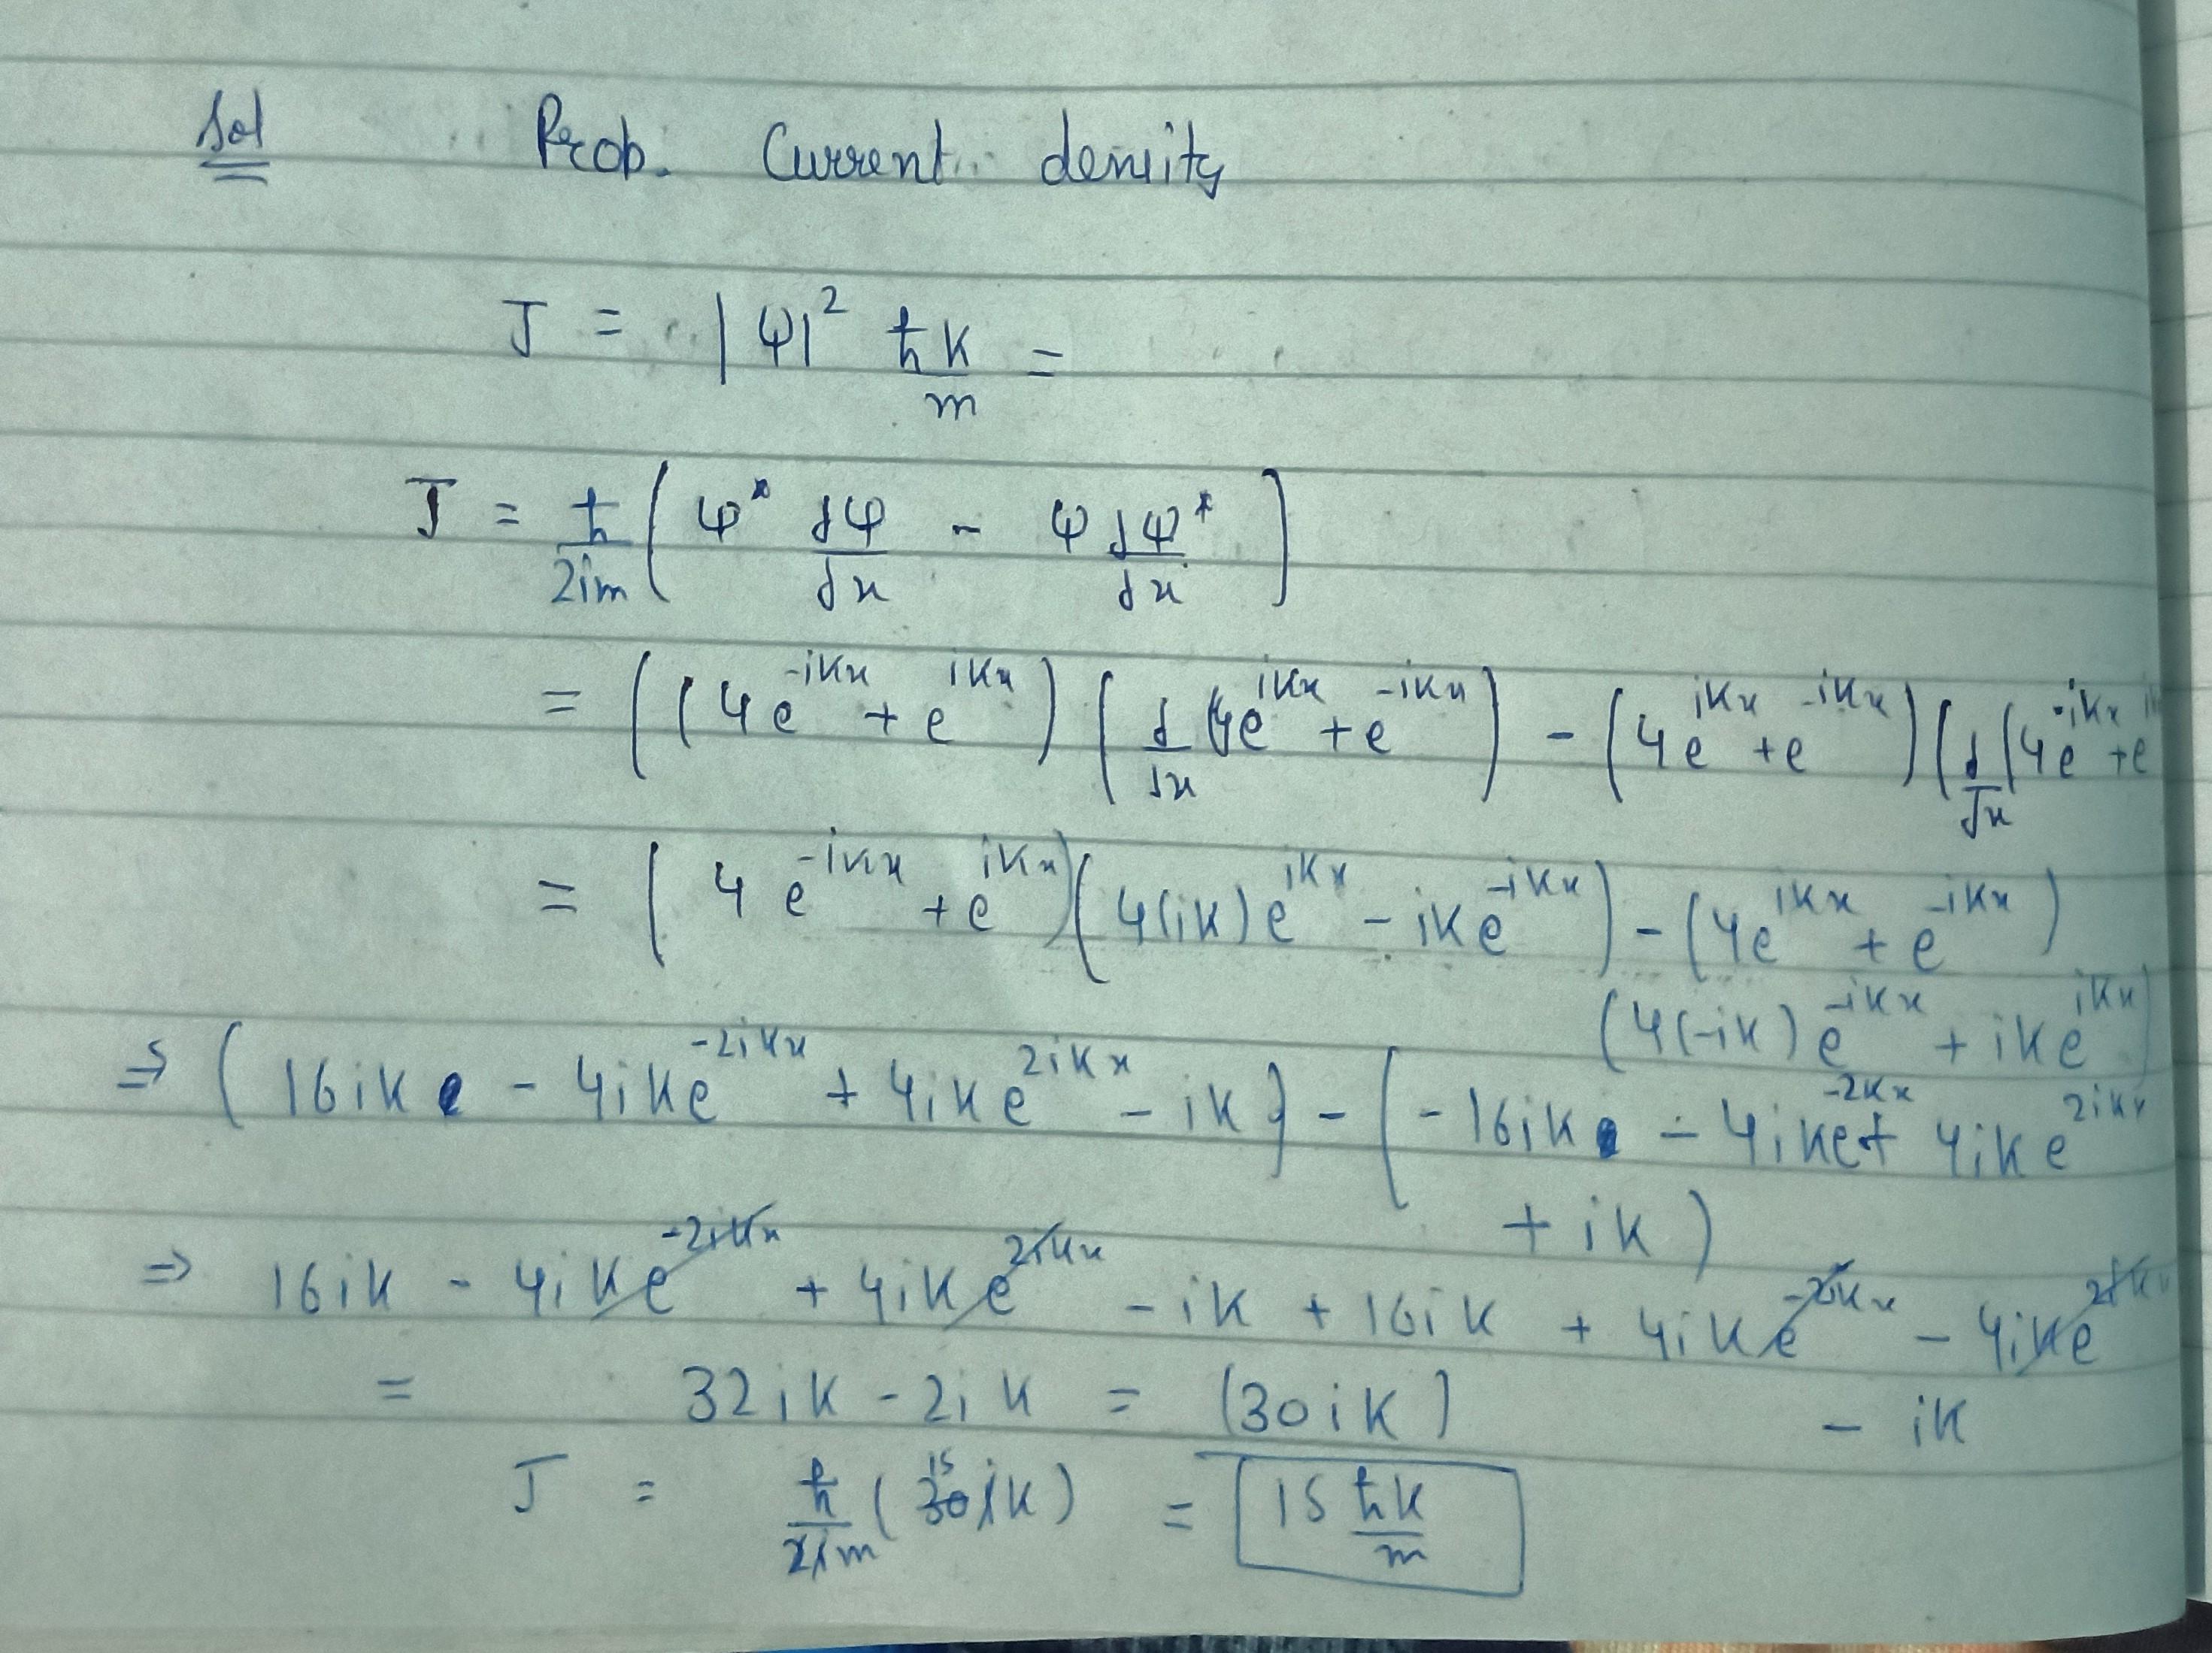 Sol Prob. Current density
J = |ψ|² ħk/m =
J = ħ/2im ( ψ* dψ/dx - ψ dψ*/dx )
= ( (4e^-ikx + e^ikx) ( d/dx (4e^ikx + e^-ikx) - (4e^ikx + e^-ikx) ( d/dx (4e^-ikx + e
= ( 4e^-ikx + e^ikx) ( 4(ik)e^ikx - ike^-ikx ) - (4e^ikx + e^-ikx)
(4(-ik)e^-ikx + ike^ikx)
⇒ ( 16ik - 4ike^-2ikx + 4ike^2ikx - ik ) - ( -16ik - 4ike^-2kx + 4ike^2ikx
+ ik )
⇒ 16ik - 4ike^-2ikx + 4ike^2ikx - ik + 16ik + 4ike^-2kx - 4ike^2ikx
- ik
= 32ik - 2ik = (30ik)
J = ħ/2im ( 30 15 ik) = 15 ħk/m